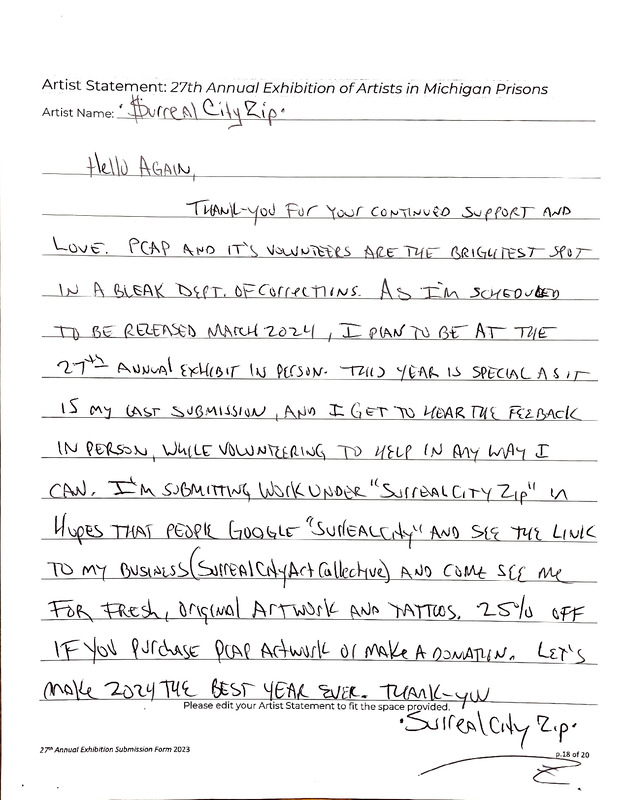 Artist Statement: 27th Annual Exhibition of Artists in Michigan Prisons
Artist Name: "$urreal City Zip"
Hello Again,
Thank-you for your continued support and
love. PCAP and it's volunteers are the brightest spot
in a bleak Dept. of Corrections. As I'm scheduled
to be released March 2024, I plan to be at the
27th Annual Exhibit in person. This year is special as it
is my last submission, and I get to hear the feeback
in person, while volunteering to help in any way I
can. I'm submitting work under "Surreal City Zip" in
hopes that people Google "Surrealcity" and see the link
to my business (SurrealCityArtCollective) and come see me
for fresh, original artwork and tattoos. 25% off
if you purchase PCAP artwork or make a donation. Let's
make 2024 the best year ever. Thank-you
Please edit your Artist Statement to fit the space provided.
"Surreal City Zip"
27th Annual Exhibition Submission Form 2023
p.18 of 20